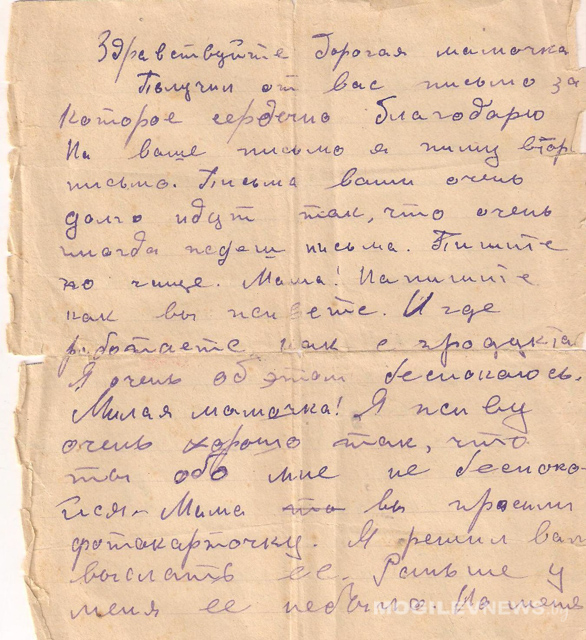 Здравствуйте дорогая мамочка
Получил от вас письмо за
которое сердечно благодарю
На ваше письмо я пишу втор
письмо. Письма ваши очень
долго идут так, что очень
иногда ждеш письма. Пишите
по чаще. Мама! Напишите
как вы живете. И где
работаете как с продукта
Я очень об этом беспокаюсь.
Милая мамочка! Я живу
очень хорошо так, что
ты обо мне не беспоко-
йся. Мама то вы просили
фотакарточку. Я решил вам
выслать ее. Раньше у
меня ее небыло. На меня
MOGILEVNEWS.by